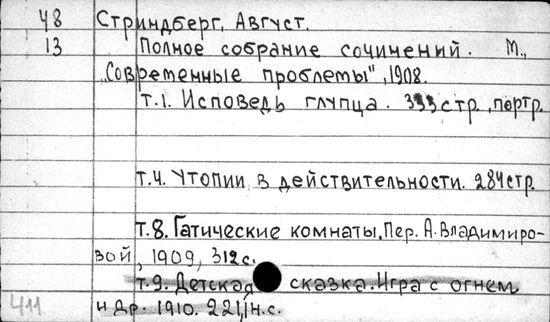 48 Стриндберг, Август.
13 Полное собрание сочинений. М.,
„Современные проблемы", 1908.
т.1. Исповедь глупца. 333 стр, портр.
т.4. Утопии в действительности. 284 стр.
т.8. Гатические комнаты. Пер. А. Владимиро-
вой, 1909, 312 с.
т.9. Детская сказка. Игра с огнем
и др. 1910. 221, с.
411